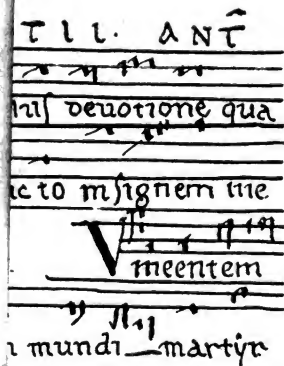 TII. ANT̄
iuſ devotione qua
cto inſignem me
Vincentem
mundi martẏr